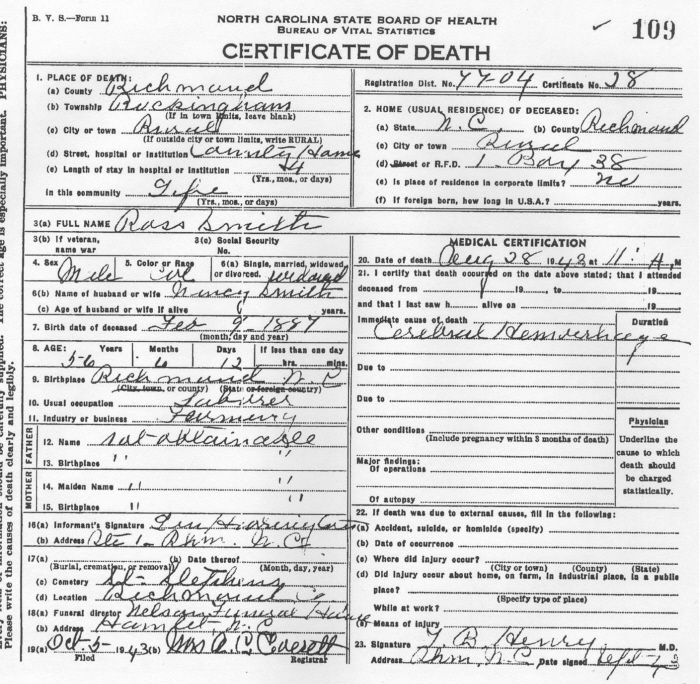 B. V. S.—Form 11
NORTH CAROLINA STATE BOARD OF HEALTH
BUREAU OF VITAL STATISTICS
CERTIFICATE OF DEATH
✓ 109
Registration Dist. No. 77-04 Certificate No. 28
1. PLACE OF DEATH:
(a) County Richmond
(b) Township Rockingham
(If in town limits, leave blank)
(c) City or town Rural
(If outside city or town limits, write RURAL)
(d) Street, hospital or institution County Home
(e) Length of stay in hospital or institution 4
(Yrs., mos., or days)
in this community Life
(Yrs., mos., or days)
2. HOME (USUAL RESIDENCE) OF DECEASED:
(a) State N. C. (b) County Richmond
(c) City or town Rural
(d) Street or R.F.D. 1 Box 38
(e) Is place of residence in corporate limits? no
(f) If foreign born, how long in U.S.A.? years.
3(a) FULL NAME Ross Smith
3(b) If veteran, name war
3(c) Social Security No.
4. Sex Male
5. Color or Race Col
6(a) Single, married, widowed or divorced. widowed
6(b) Name of husband or wife Nincy Smith
(c) Age of husband or wife if alive years.
7. Birth date of deceased Feb 9 - 1887
(month, day and year)
8. AGE: Years 56 Months 6 Days 12 If less than one day hrs. min.
9. Birthplace Richmond N. C
(City, town, or county) (State or foreign country)
10. Usual occupation Laborer
11. Industry or business Farming
FATHER
12. Name not obtainable
13. Birthplace " "
MOTHER
14. Maiden Name " "
15. Birthplace " "
16(a) Informant's Signature
(b) Address Rte 1- Rhm. N. C
17(a) (b) Date thereof
(Burial, cremation, or removal) (Month, day, year)
(c) Cemetery St- Stephens
(d) Location Richmond Co
18(a) Funeral director Nelson Funeral Home
(b) Address Hamlet N. C
19(a) Oct-5- 1943 (b) Mrs A. C. Everett
Filed Registrar
MEDICAL CERTIFICATION
20. Date of death Aug 28 1943 at 11: A. M
21. I certify that death occurred on the date above stated; that I attended
deceased from 19 , to 19
and that I last saw h alive on 19
Immediate cause of death Duration
Cerebral Hemorrhage
Due to
Due to
Other conditions
(Include pregnancy within 3 months of death)
Major findings:
Of operations
Of autopsy
Physician
Underline the cause to which death should be charged statistically.
22. If death was due to external causes, fill in the following:
(a) Accident, suicide, or homicide (specify)
(b) Date of occurrence
(c) Where did injury occur?
(City or town) (County) (State)
(d) Did injury occur about home, on farm, in industrial place, in a public
place?
(Specify type of place)
While at work?
(e) Means of injury
23. Signature T. B. Henry M.D.
Address Rhm, N. C. Date signed Sept-43
PHYSICIANS:
age is especially important.
Please write the causes of death clearly and legibly.